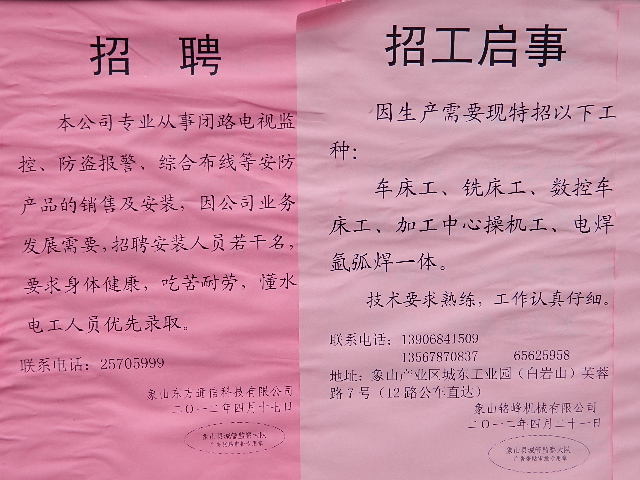 招聘
本公司专业从事闭路电视监
控、防盗报警、综合布线等安防
产品的销售及安装，因公司业务
发展需要，招聘安装人员若干名，
要求身体健康，吃苦耐劳，懂水
电工人员优先录取。
联系电话：25705999
象山东方通信科技有限公司
二〇一二年四月十七日
象山县城管监察大队
招工启事
因生产需要现特招以下工
种：
车床工、铣床工、数控车
床工、加工中心操机工、电焊
氩弧焊一体。
技术要求熟练，工作认真仔细。
联系电话：13906841509
13567870837 65625958
地址：象山产业区城东工业园（白岩山）芙蓉
路7号（12路公车直达）
象山铭峰机械有限公司
二〇一二年四月二十一日
象山县城管监察大队